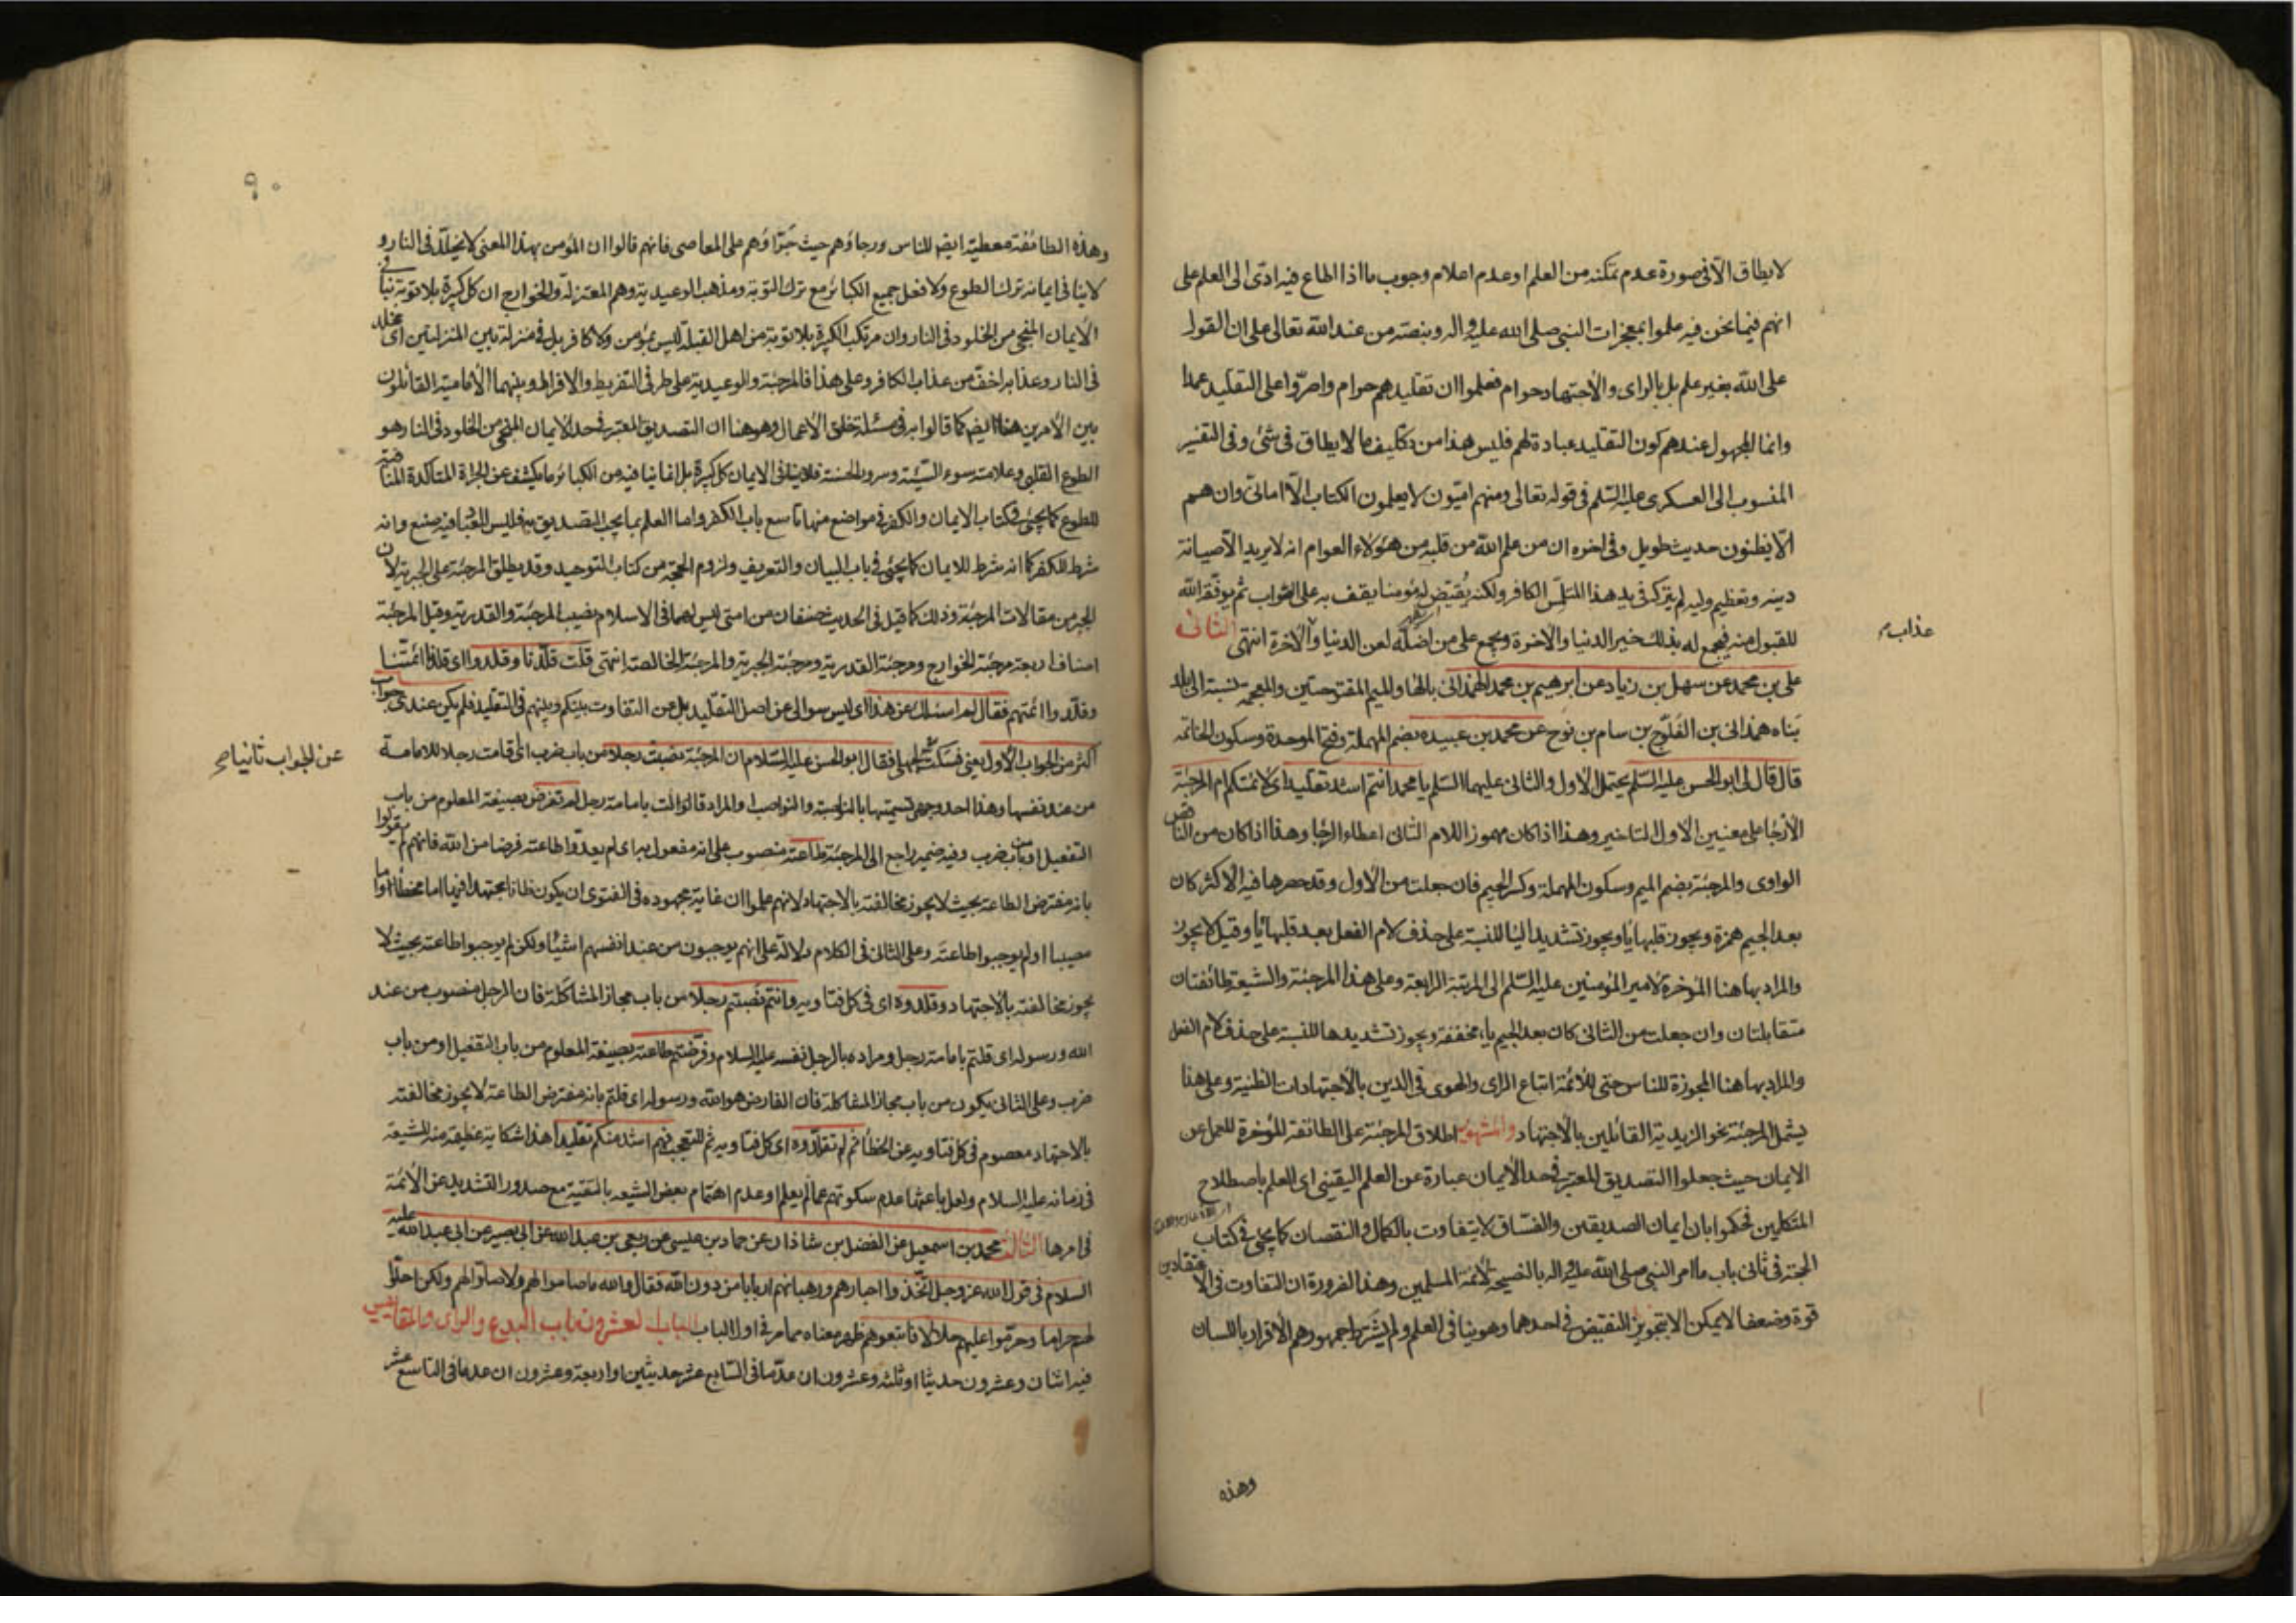 لا يطاق الّا فى صورة عدم تمكنه من العلم او عدم اعلام وجوب ما اذا اطاع فيه ادّى الى العلم على
انهم فيما نحن فيه علموا بمعجزات النبى صلى الله عليه واله وبنصّه من عند الله تعالى على ان القول
على الله بغير علم بل بالراى والاجتهاد حرام فعلموا ان تقليدهم حرام واصرّوا على التقليد عمدا
وانما المجهول عندهم كون التقليد عبادة لهم فليس هذا من تكليف ما لا يطاق فى شئ وفى التفسير
المنسوب الى العسكرى عليه السّلم فى قوله تعالى ومنهم امّيّون لا يعلمون الكتاب الّا امانىّ وان هم
الّا يظنون حديث طويل وفى اخره ان من علم الله من قلبه من هؤلاء العوام انه لا يريد الّا صيانة
دينه وتعظيم وليه لم يتركه فى يد هذا الملبّس الكافر ولكنه يُقيّض له مؤمنا يقف به على الصّواب ثم يوفّقه الله
للقبول منه فيجمع له بذلك خير الدنيا والاخرة ويجمع على من اضلّه لعن الدنيا والاخرة انتهى الثانى
عذاب
على بن محمد عن سهل بن زياد عن ابرهيم بن محمد الهمذانى بالهاء والميم المفتوحتين والمعجمة نسبة الى بلد
بَناه همذانى بن الفَلّوج بن سام بن نوح عن محمد بن عبيده بضم المهملة وفتح الموحدة وسكون الخاتمه
قال قال لى ابو الحسن عليه السّلم يحتمل الاول والثانى عليهما السّلم يا محمد انتم اشد تقليدا اى لائمتكم ام المرجئة
الارجاء على معنيين الاول التاخير وهذا اذا كان مهموز اللام الثانى اعطاء الرجا وهذا اذا كان من الناقص
الواوى والمرجئة بضم الميم وسكون المهملة وكسر الجيم فان جعلت من الاول وقد حصرها فيه الاكثر كان
بعد الجيم همزة ويجوز قلبها ياء ويجوز تشديد الياء للنسبة على حذف لام الفعل بعد قلبها ياء وقيل لا يجوز
والمراد بها هنا المؤخرة لامير المؤمنين عليه السّلم الى المرتبة الرابعة وعلى هذا المرجئة والشيعة طائفتان
متقابلتان وان جعلت من الثانى كان بعد الجيم ياء مخففة ويجوز تشديدها للنسبة على حذف لام الفعل
والمراد بها هنا المجوزة للناس حتى للائمة اتباع الراى والهوى فى الدين بالاجتهادات الظنية وعلى هذا
يشمل المرجئة نحو الزيدية القائلين بالاجتهاد والمشهور اطلاق المرجئة على الطائفة المؤخرة للعمل عن
الايمان حيث جعلوا التصديق المعتبر فى حد الايمان عبارة عن العلم اليقينى اى العلم باصطلاح
المتكلمين فحكموا بان ايمان الصديقين والفسّاق لا يتفاوت بالكمال والنقصان كما يجئ فى كتاب
الحجة فى ثانى باب ما امر النبى صلى الله عليه واله بالنصيحة لائمة المسلمين وهذا لضرورة ان التفاوت فى الاعتقادين
قوة وضعفا لا يمكن الا بتجويز النقيض فى احدهما وهو ينافى العلم ولم يشترط جمهورهم الاقرار باللسان
وهذه
٩٠
وهذه الطائفة معطية ايضا للناس ورجاؤهم حيث جَرّاؤهم على المعاصى فانهم قالوا ان المؤمن بهذا المعنى لا يخلّد فى النار و
لا ينافى ايمانه ترك الطوع ولا فعل جميع الكبائر مع ترك التوبة ومذهب الوعيدية وهم المعتزلة والخوارج ان كل كبيرة بلا توبة تنافى
الايمان المنجى من الخلود فى النار وان مرتكب الكبيرة بلا توبة من اهل القبلة ليس بمؤمن ولا كافر بل فى منزلة بين المنزلتين اى مخلد
فى النار وعذابه اخفّ من عذاب الكافر وعلى هذا فالمرجئة والوعيدية على طرفى التفريط والافراط وبينهما الامامية القائلون
بين الامرين هنا ايضا كما قالوا به فى مسئلة خلق الاعمال وهو هنا ان التصديق المعتبر فى حد الايمان المنجى من الخلود فى النار هو
الطوع القلبى وعلامته سوء السّيّئة وسرور الحسنة فلا ينافى الايمان كل كبيرة بل انما ينافيه من الكبائر ما يكشف عن الجراة المتاكدة المنافية
للطوع كما يجئ فى كتاب الايمان والكفر فى مواضع منها تاسع باب الكفر واما العلم بما يجب التصديق به فليس للعباد فيه صنع وانه
شرط للكفر كما انه شرط للايمان كما يجئ فى باب البيان والتعريف ولزوم الحجة من كتاب التوحيد وقد يطلق المرجئة على الجبرية لان
الجبر من مقالات المرجئة وذلك كما قيل فى الحديث صنفان من امتى ليس لهما فى الاسلام نصيب المرجئة والقدرية وقيل المرجئة
اصناف اربعة مرجئة الخوارج ومرجئة القدرية ومرجئة الجبرية والمرجئة الخالصة انتهى قلت قلّدنا وقلدوا اى قلدنا ائمتنا
وقلّدوا ائمتهم فقال لم اسئلك عن هذا اى ليس سوالى عن اصل التقليد بل عن التفاوت بينكم وبينهم فى التقليد فلم يكن عندى جواب
اكثر من الجواب الاول يعنى فسكتّ لجهلى فقال ابو الحسن عليه السّلام ان المرجئة نصبت رجلا من باب ضرب اى اقامت رجلا للامامة
عن الجواب ثانيا صح
من عند نفسها وهذا احد وجهى تسميتها بالناصبة والنواصب والمراد قالوا الت بامامة رجل لم تفرض بصيغة المعلوم من باب
التفعيل او باب ضرب وفيه ضمير راجع الى المرجئة طاعته منصوب على انه مفعول به اى لم يعدّوا طاعته فرضا من الله فانهم لم يقولوا
بانه مفترض الطاعة بحيث لا يجوز مخالفته بالاجتهاد لانهم علموا ان غاية مجهوده فى الفتوى ان يكون ظانا مجتهدا فيها اما مخطأ او اما
مصيبا او لم يوجبوا طاعته وعلى الثانى فى الكلام دلالة على انهم يوجبون من عند انفسهم اشياء ولكن لم يوجبوا طاعته بحيث لا
يجوز مخالفته بالاجتهاد وقلدوه اى فى كل فتاويه وانتم نصبتم رجلا من باب مجاز المشاكلة فان الرجل منصوب من عند
الله ورسوله اى قلتم بامامة رجل ومراده بالرجل نفسه عليه السلام وفرضتم طاعته بصيغة المعلوم من باب التفعيل او من باب
ضرب وعلى الثانى يكون من باب مجاز المشاكلة فان الفارض هو الله ورسوله اى قلتم بانه مفترض الطاعة لا يجوز مخالفته
بالاجتهاد معصوم فى كل فتاويه عن الخطأ ثم لم تقلّدوه اى كل فتاويه ثم للتعجب فهم اشد منكم تقليدا هذا شكاية عظيمة منه للشيعة
فى زمانه عليه السلام ولعل باعثها عدم سكوتهم عما لم يعلم او عدم اهتمام بعض الشيعه بالتقية مع صدور التشديد عن الائمة
فى امرها الثالث محمد بن اسمعيل عن الفضل بن شاذان عن حماد بن عيسى عن ربعى بن عبد الله عن ابى بصير عن ابى عبد الله عليه
السلام فى قول الله عز وجل اتّخذوا احبارهم ورهبانهم اربابا من دون الله فقال والله ما صاموا لهم ولا صلّوا لهم ولكن احلّوا
لهم حراما وحرّموا عليهم حلالا فاتبعوهم ظهر معناه مما مر فى اول الباب الباب العشرون باب البدع والراى والمقائيس
فيه اثنان وعشرون حديثا او ثلثه وعشرون ان عدّ ما فى السّابع عشر حديثين او اربعة وعشرون ان عد ما فى التاسع عشر